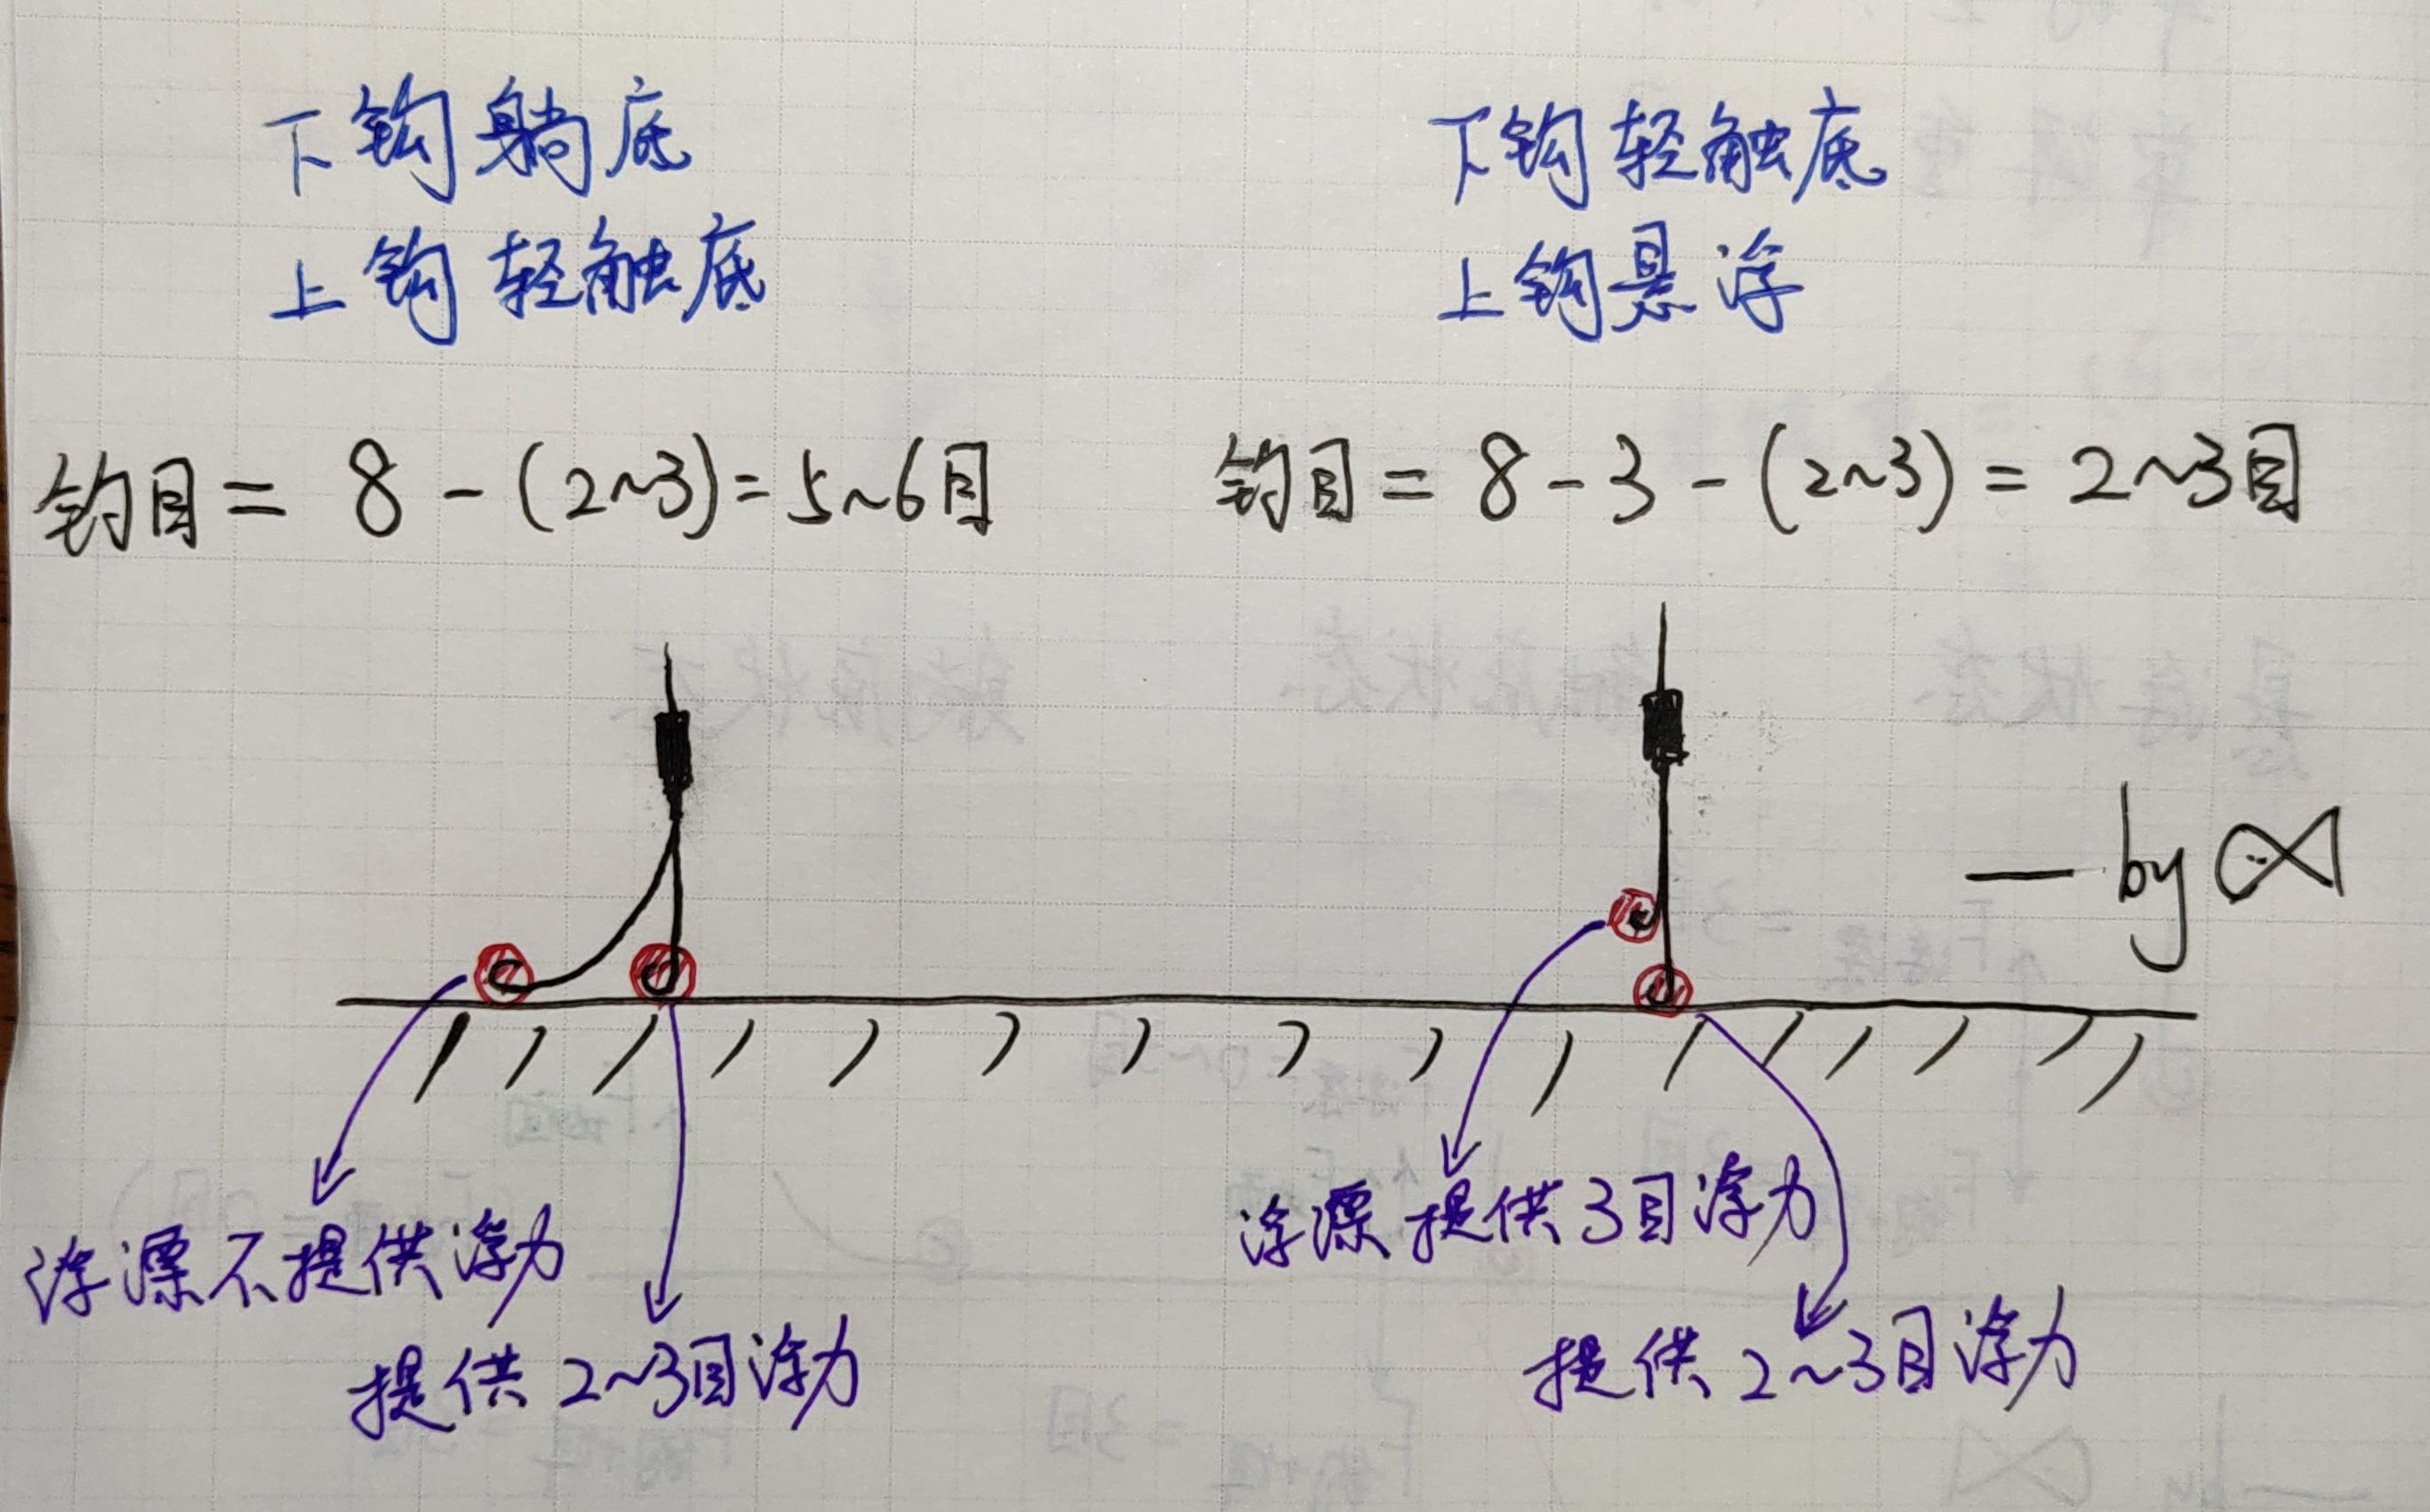 下钩躺底
上钩轻触底
钓目 = 8 - (2~3) = 5~6目
浮漂不提供浮力
提供2~3目浮力
下钩轻触底
上钩悬浮
钓目 = 8 - 3 - (2~3) = 2~3目
— by
浮漂提供3目浮力
提供2~3目浮力